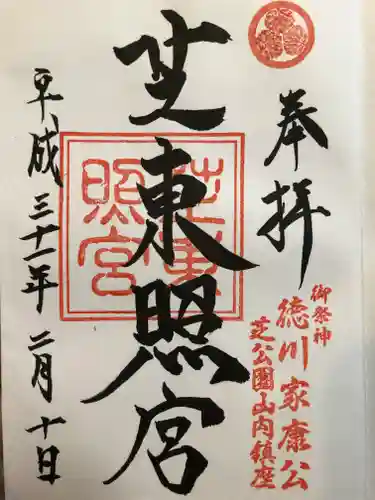 奉拝
御祭神
徳川家康公
芝公園山内鎮座
芝東照宮
芝東照宮
平成三十一年二月十日